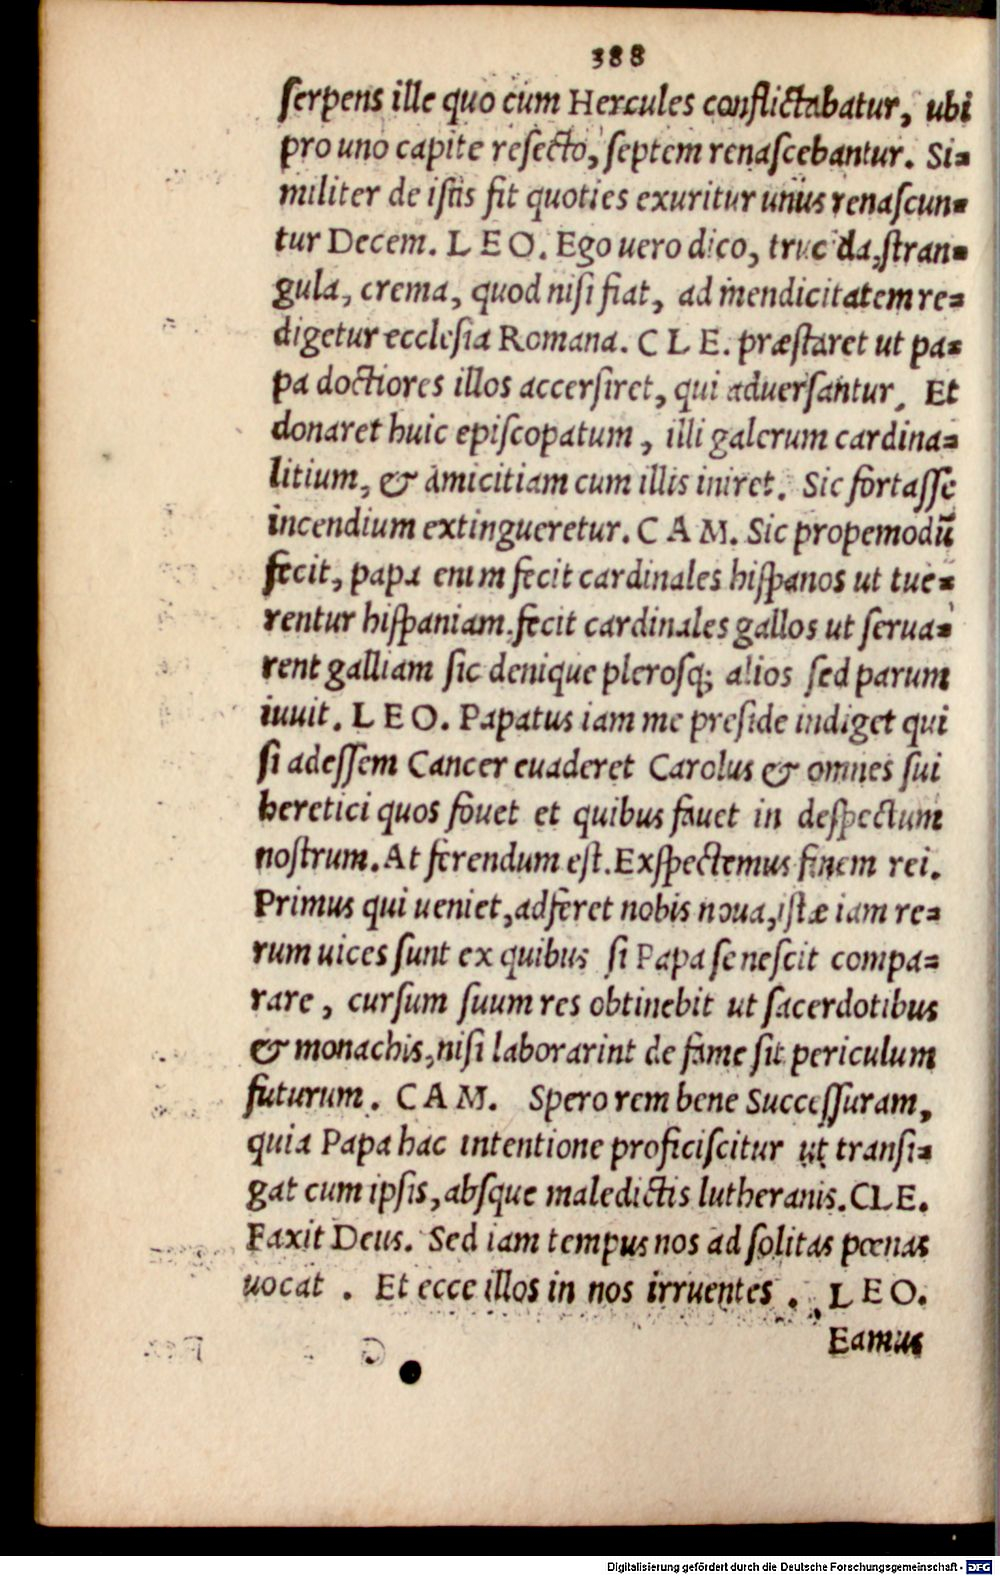 388
serpens ille quo cum Hercules conflictabatur, ubi
pro uno capite resecto, septem renascebantur. Si=
militer de istis fit quoties exuritur unus renascun=
tur Decem. L E O. Ego uero dico, trucida, stran=
gula, crema, quod nisi fiat, ad mendicitatem re=
digetur ecclesia Romana. C L E. præstaret ut pa=
pa doctiores illos accersiret, qui aduersantur, Et
donaret huic episcopatum, illi galerum cardina=
litium, & amicitiam cum illis iniret. Sic fortasse
incendium extingueretur. C A M. Sic propemodū
fecit, papa enim fecit cardinales hispanos ut tue=
rentur hispaniam. fecit cardinales gallos ut serua=
rent galliam sic denique plerosq; alios sed parum
iuuit. L E O. Papatus iam me preside indiget qui
si adessem Cancer euaderet Carolus & omnes sui
heretici quos fouet et quibus fauet in despectum
nostrum. At ferendum est. Exspectemus finem rei.
Primus qui ueniet, adferet nobis noua, istæ iam re=
rum uices sunt ex quibus si Papa se nescit compa=
rare, cursum suum res obtinebit ut sacerdotibus
& monachis, nisi laborarint de fame sit periculum
futurum. C A M. Spero rem bene Successuram,
quia Papa hac intentione proficiscitur ut transi=
gat cum ipsis, absque maledictis lutheranis. CLE.
Faxit Deus. Sed iam tempus nos ad solitas pœnas
uocat. Et ecce illos in nos irruentes. L E O.
Eamus
Digitalisierung gefördert durch die Deutsche Forschungsgemeinschaft - DFG